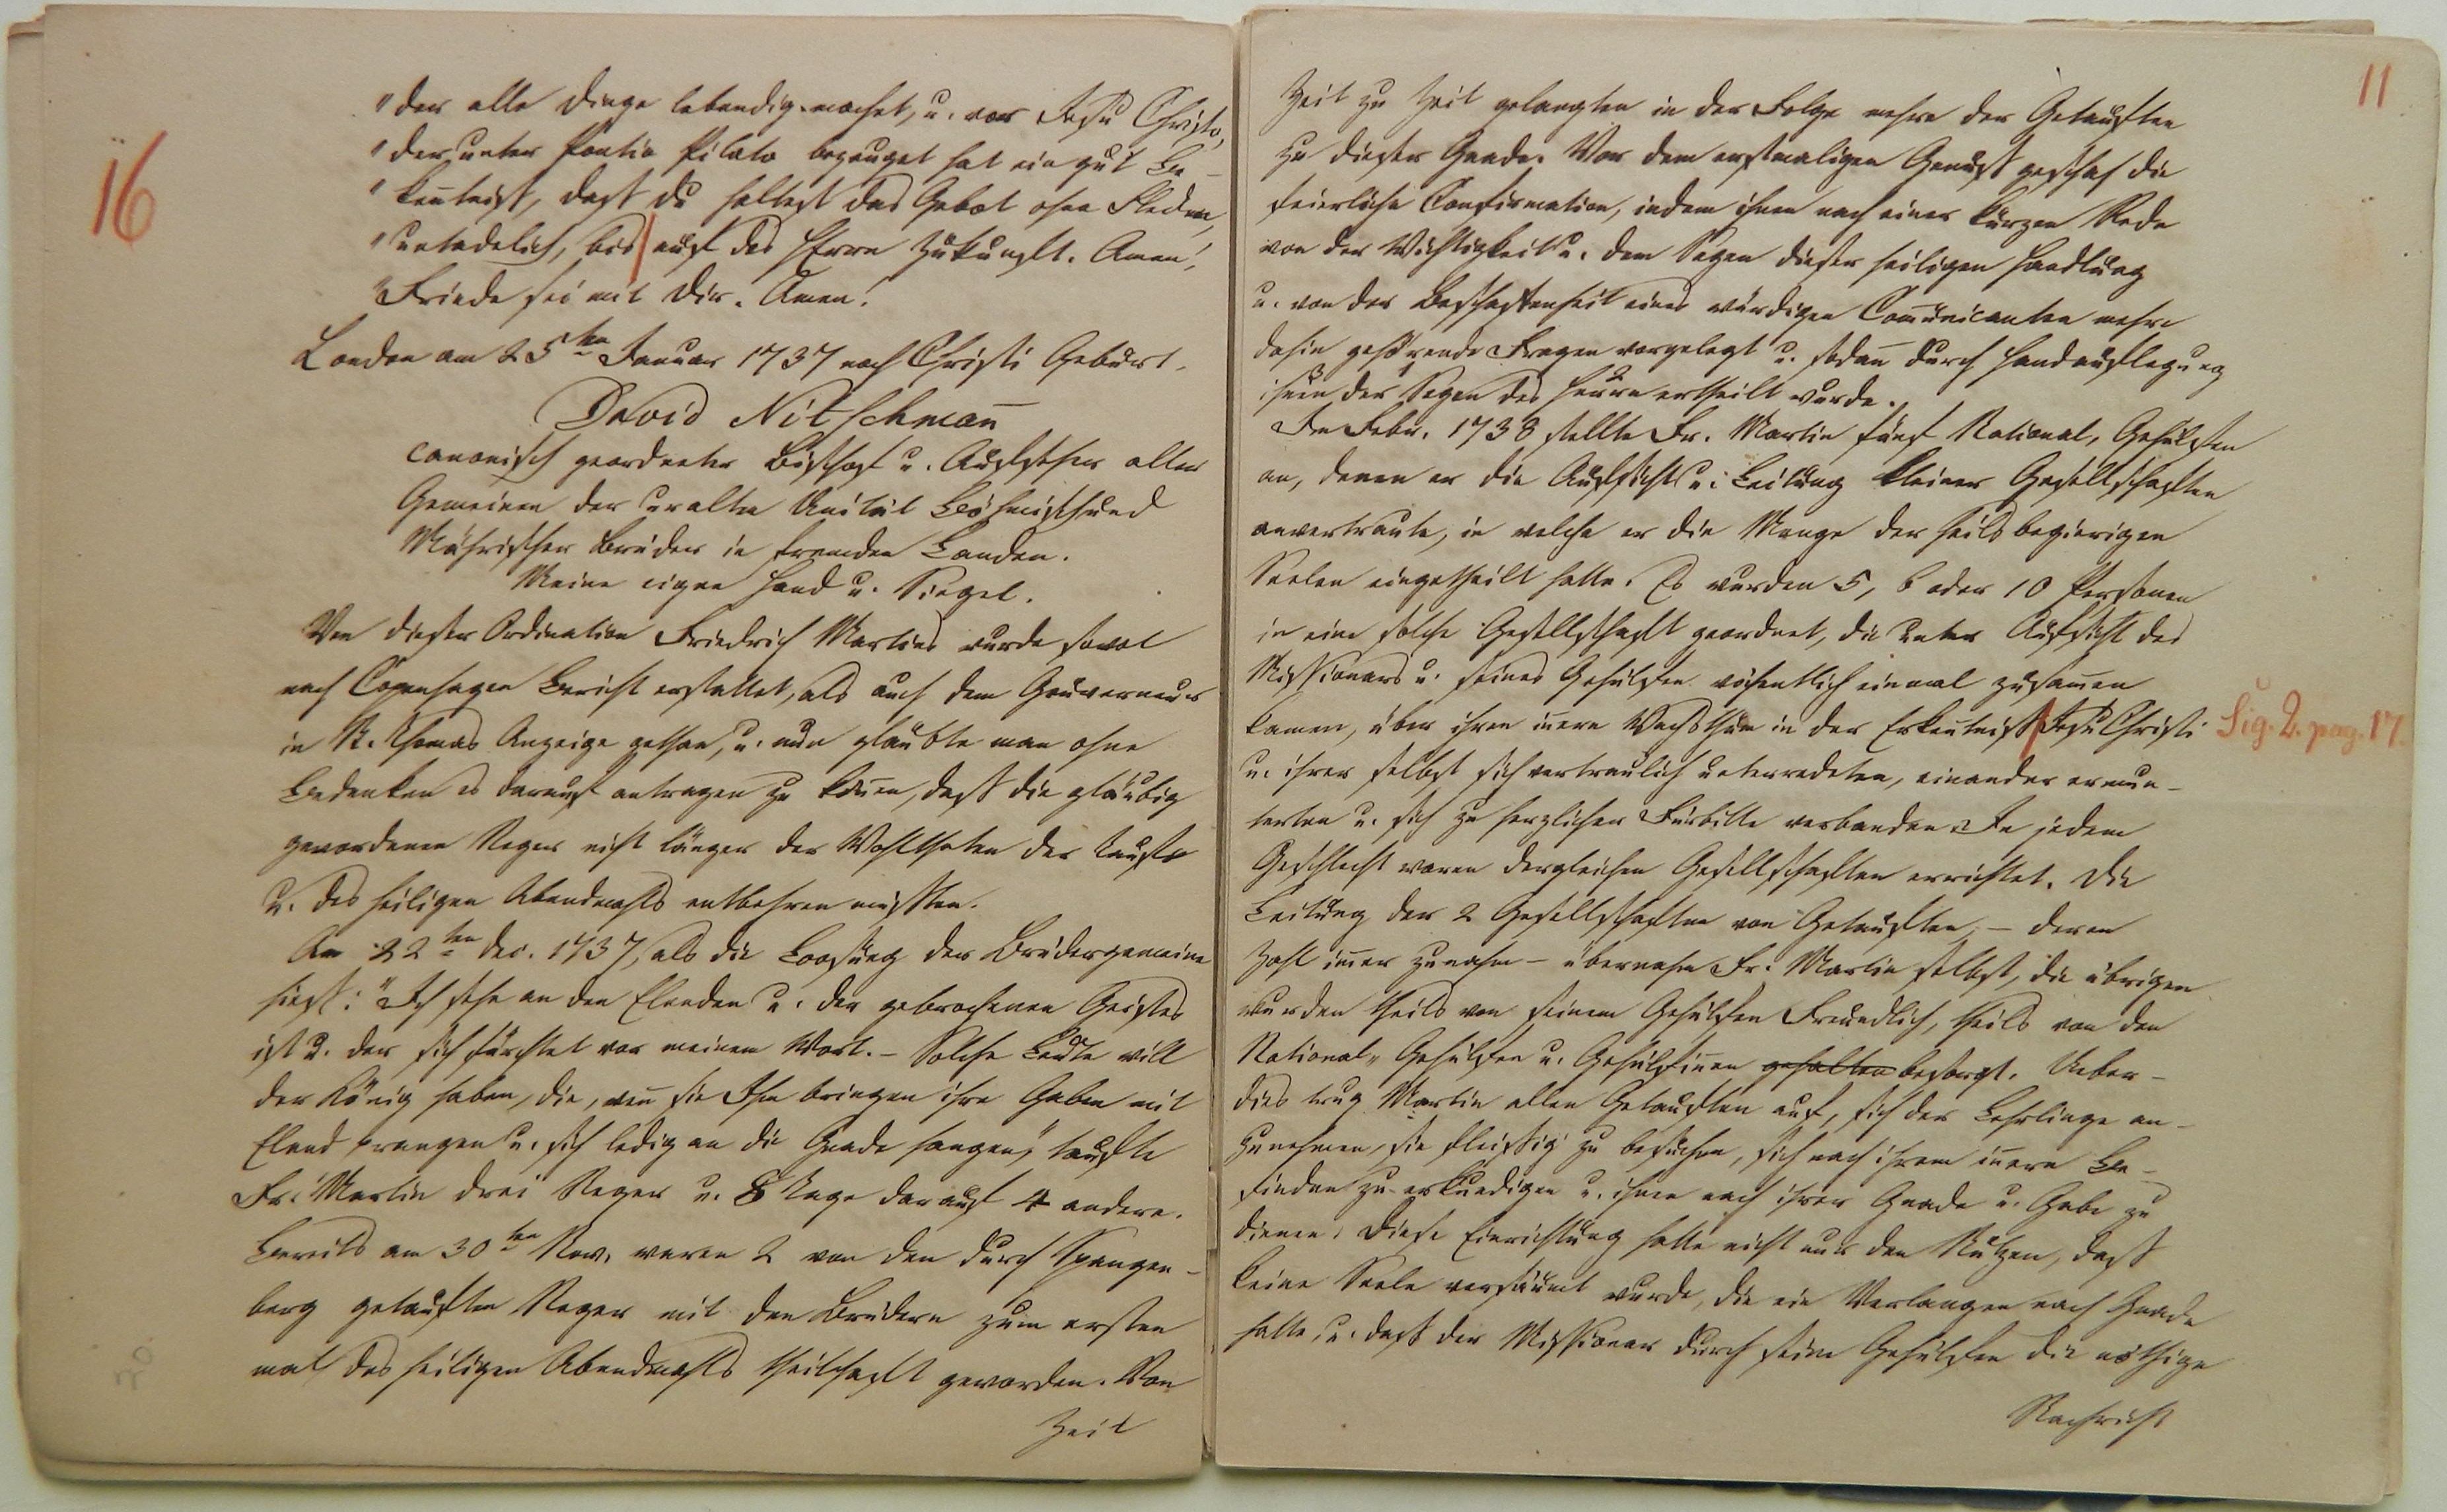 16
"der alle Dinge lebendig machet, u. vor Jesu Christo,
"der unter Pontio Pilato bezeuget hat ein gut Be-
"kentniß, daß du haltest das Gebot ohne Flecken,
"untadelich, bis auf des Herrn Zukunft. Amen!
"Friede sei mit Dir. Amen!
London am 25ten Januar 1737 nach Christi Geburt.
David Nitschman̄
canonisch geordneter Bischof u. Aufseher aller
Gemeinen der uralten Unität Böhmisch und
Mährischer Brüder in fremden Landen.
Meine eigne Hand u. Siegel.
Von dieser Ordination Friedrich Martins wurde sowol
nach Copenhagen Bericht erstattet, als auch dem Gouverneur
in St. Thomas Anzeige gethan, u. nun glaubte man ohne
Bedenken es darauf antragen zu kön̄en, daß die gläubig
gewordenen Neger nicht länger der Wohlthaten der Taufe
u. des heiligen Abendmahls entbehren müßten.
Am 22ten Dec. 1737, als die Loosung der Brüdergemeine
hieß: "Ich sehe an den Elenden u. der gebrochenen Geistes
ist u. der sich fürchtet vor meinem Wort. – Solche Leute will
der König haben, die, wen̄ sie Ihm bringen ihre Gaben mit
Elend prangen u. sich ledig an die Gnade hangen," taufte
Fr. Martin drei Neger u. 8 Tage darauf 4 andere.
Bereits am 30ten Nov. waren 2 von den durch Spangen-
berg getauften Neger mit den Brüdern zum ersten
mal des heiligen Abendmahls theilhaft geworden. Von
Zeit
11
Zeit zu Zeit gelangten in der Folge mehre der Getauften
zu dieser Gnade. Vor dem erstmaligen Genuß geschah die
feierliche Confirmation, indem ihnen nach einer kurzen Rede
von der Wichtigkeit u. dem Segen dieser heiligen Handlung
u. von der Beschaffenheit eines würdigen Com̄unicanten mehre
dahin gehörende Fragen vorgelegt u. sodan̄ durch Handauflegung
ihnen der Segen des Herrn ertheilt wurde.
Im Febr. 1738 stellte Fr. Martin fünf National, Gehülfen
an, denen er die Aufsicht u. Leitung kleiner Gesellschaften
anvertraute, in welche er die Menge der heilsbegierigen
Seelen eingetheilt hatte. Es wurden 5, 6 oder 10 Personen
in eine solche Gesellschaft geordnet, die unter Aufsicht des
Missionars u. seines Gehülfen wöchentlich einmal zusam̄en
kamen, über ihren in̄ern Wachsthum in der Erkentniß Jesu Christi
Sig. 2. pag. 17.
u. ihrer selbst sich vertraulich unterredeten, einander ermun-
terten u. sich zu herzlicher Fürbitte verbanden. In jedem
Geschlecht waren dergleichen Gesellschaften errichtet. Die
Leitung der 2 Gesellschaften von Getauften, – deren
Zahl im̄er zunahm – übernahm Fr. Martin selbst, die übrigen
wurden theils von seinem Gehülfen Freundlich, theils von den
National, Gehülfen u. Gehülfin̄en gehalten besorgt. Ueber-
dies trug Martin allen Getauften auf, sich der Lehrlinge an-
zunehmen, sie fleißig zu besuchen, sich nach ihrem in̄ern Be-
finden zu erkundigen u. ihnen nach ihrer Gnade u. Gabe zu
dienen. Diese Einrichtung hatte nicht nur den Nutzen, daß
keine Seele versäumt wurde, die ein Verlangen nach Gnade
hatte, u. daß der Missionar durch seine Gehülfen die nöthige
Nachricht